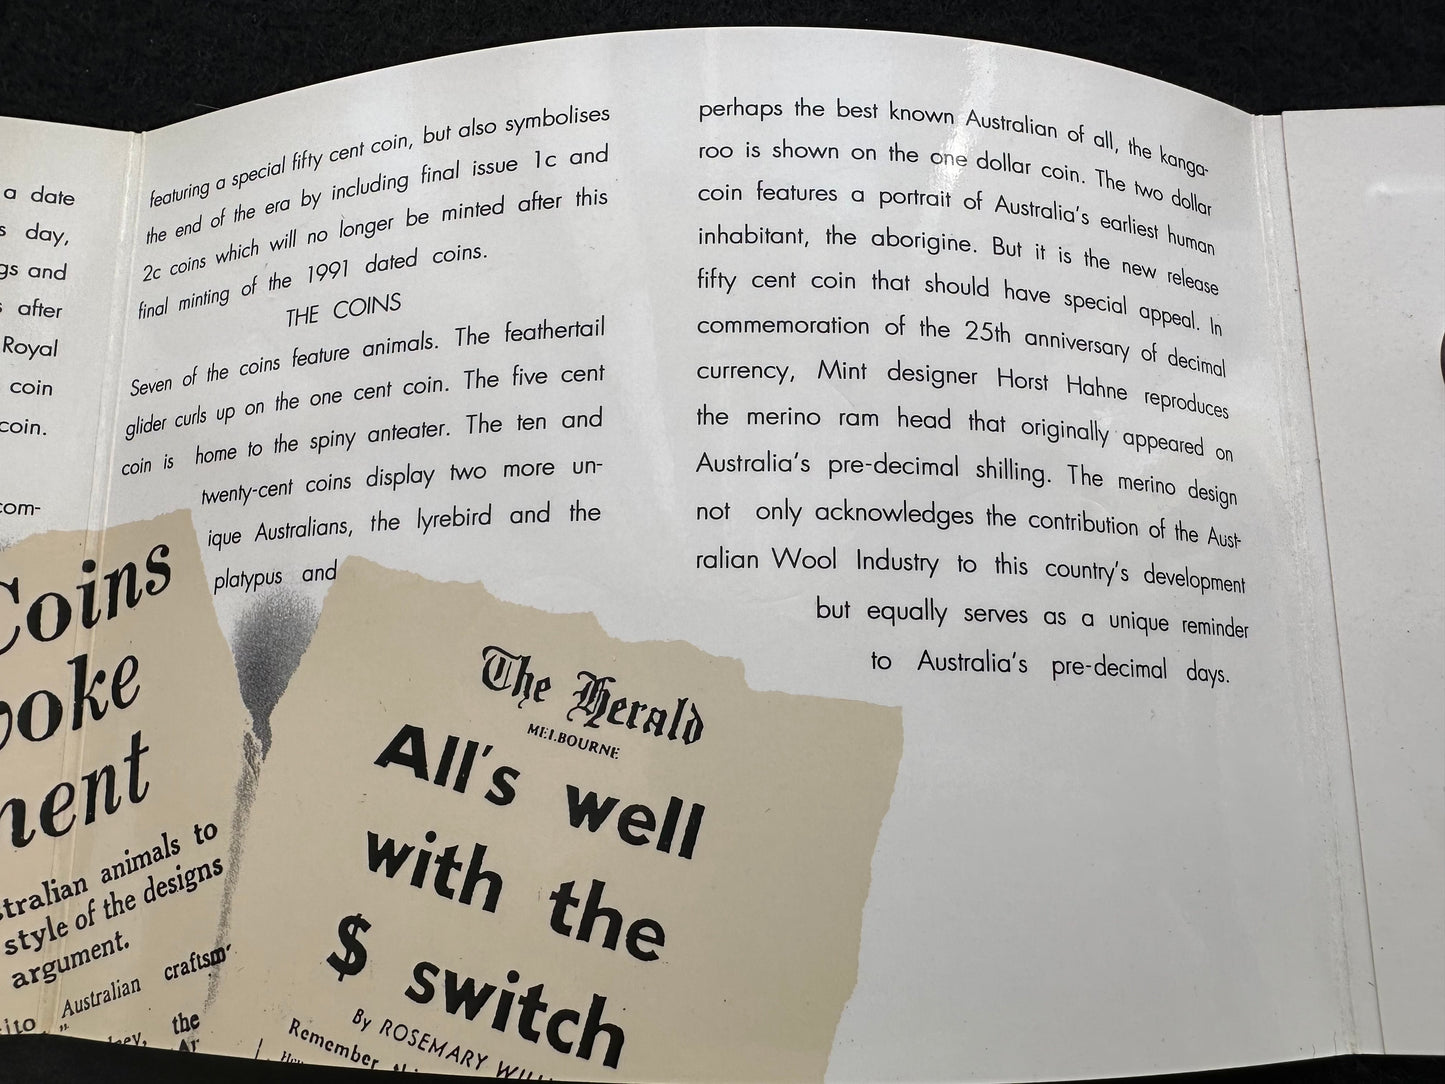 a date
day,
gs and
after
Royal
coin
coin.
com-
featuring a special fifty cent coin, but also symbolises
the end of the era by including final issue 1c and
2c coins which will no longer be minted after this
final minting of the 1991 dated coins.
THE COINS
Seven of the coins feature animals. The feathertail
glider curls up on the one cent coin. The five cent
coin is home to the spiny anteater. The ten and
twenty-cent coins display two more un-
ique Australians, the lyrebird and the
platypus and
perhaps the best known Australian of all, the kanga-
roo is shown on the one dollar coin. The two dollar
coin features a portrait of Australia's earliest human
inhabitant, the aborigine. But it is the new release
fifty cent coin that should have special appeal. In
commemoration of the 25th anniversary of decimal
currency, Mint designer Horst Hahne reproduces
the merino ram head that originally appeared on
Australia's pre-decimal shilling. The merino design
not only acknowledges the contribution of the Aust-
ralian Wool Industry to this country's development
but equally serves as a unique reminder
to Australia's pre-decimal days.
Coins
oke
ment
stralian animals to
style of the designs
argument.
Australian craftsm
the
The Herald
MELBOURNE
All's well
with the
$ switch
By ROSEMARY
Remember